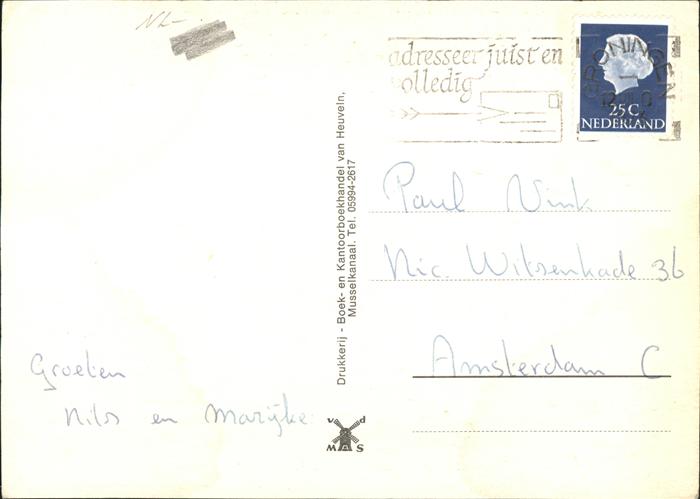 NL-
adresseer juist en
volledig
GRONINGEN
25 C
NEDERLAND
Drukkerij - Boek- en Kantoorboekhandel van Heuveln,
Musselkanaal. Tel. 05994-2617
Paul Vink
Nic. Witsenkade 36
Amsterdam C
Groeten
Nils en Marijke
v d
M A S